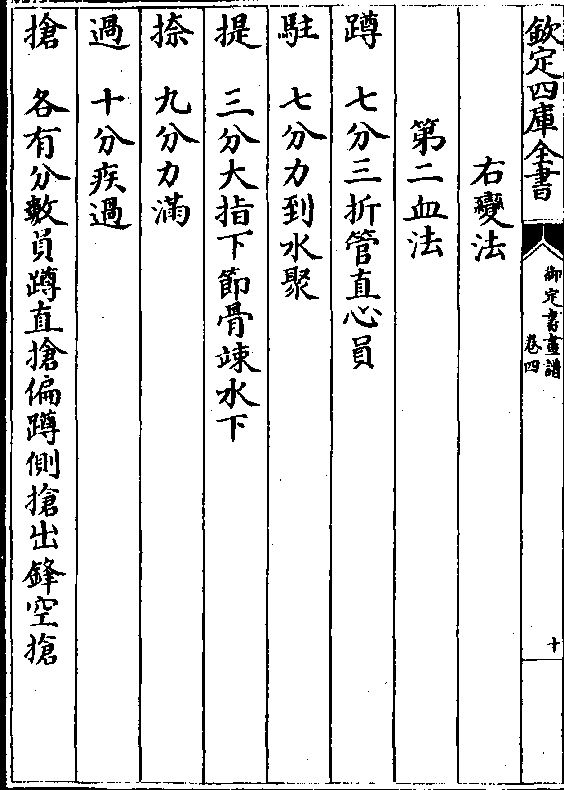 欽定四庫全書
御定書畫譜
卷四
十
右變法
第二血法
蹲 七分三折管直心員
駐 七分力到水聚
提 三分大指下節骨竦水下
捺 九分力滿
過 十分疾過
搶 各有分數員蹲直搶偏蹲側搶出鋒空搶